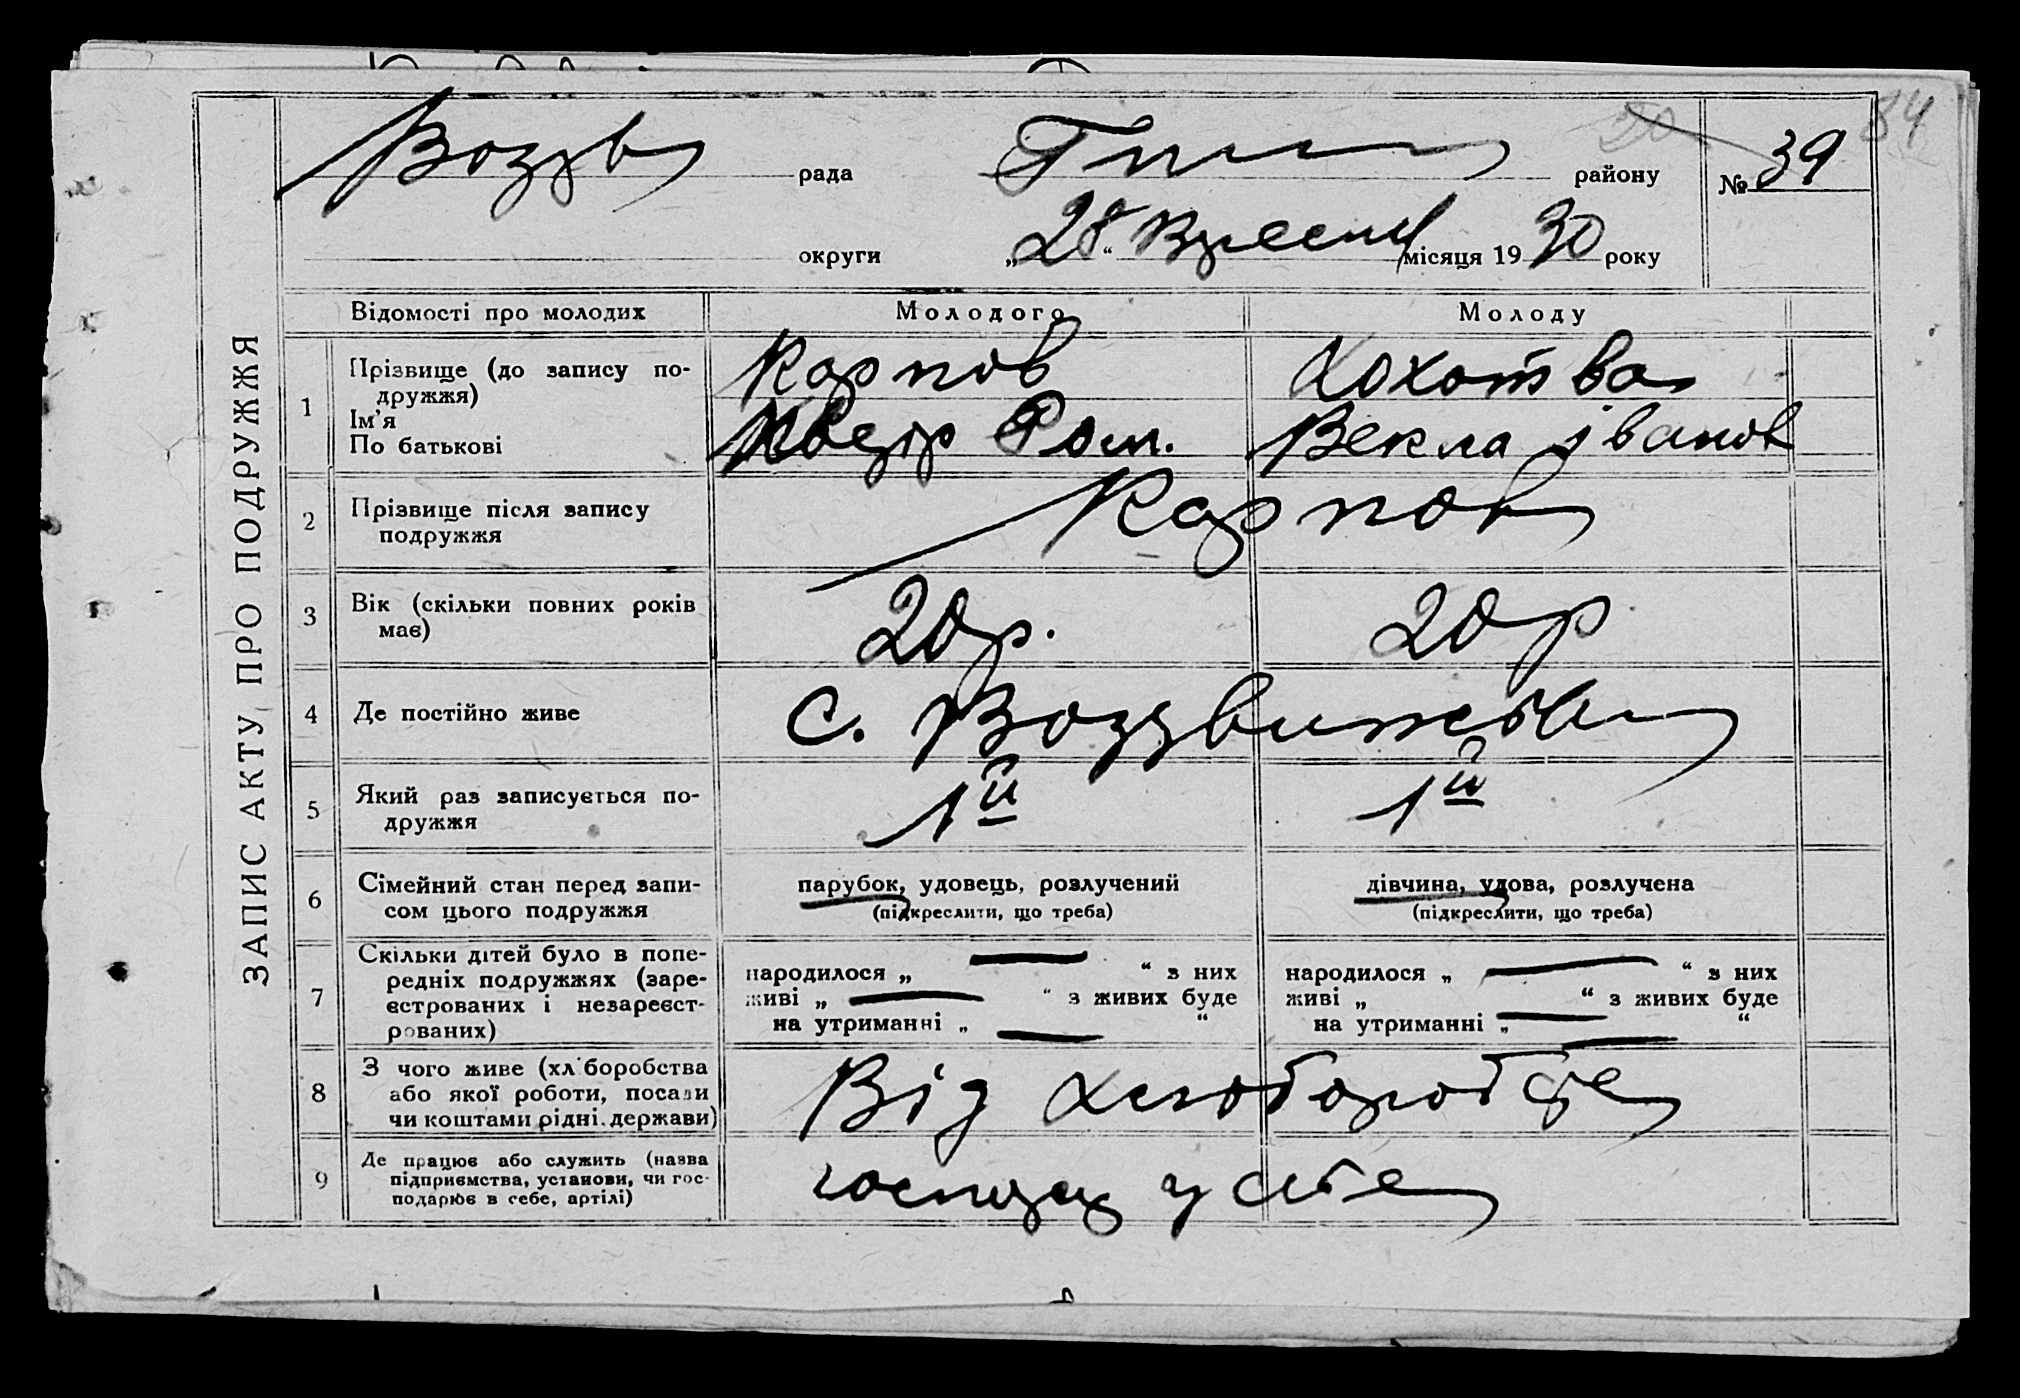 84
20
Воздв рада района району № 39
округи „28“ Вересня місяця 1930 року
ЗАПИС АКТУ ПРО ПОДРУЖЖЯ
Відомості про молодих Молодого Молоду
1 Прізвище (до запису по-
дружжя) Карпов
Ім'я
По батькові Ром. Векла Іванов
2 Прізвище після запису
подружжя Карпов
3 Вік (скільки повних років
має) 20р. 20р
4 Де постійно живе с. Воздвиженка
5 Який раз записується по-
дружжя 1й 1й
6 Сімейний стан перед запи-
сом цього подружжя
парубок, удовець, розлучений
(підкреслити, що треба)
дівчина, удова, розлучена
(підкреслити, що треба)
7 Скільки дітей було в попе-
редніх подружжях (заре-
єстрованих і незареєст-
рованих)
народилося „ — “ з них
живі „ — “ з живих буде
на утриманні „ — “
народилося „ — “ з них
живі „ — “ з живих буде
на утриманні „ — “
8 З чого живе (хліборобства
або якої роботи, посади
чи коштами рідні, держави) Від хліборобства
9 Де працює або служить (назва
підприємства, установи, чи гос-
подарює в себе, артілі) у себе